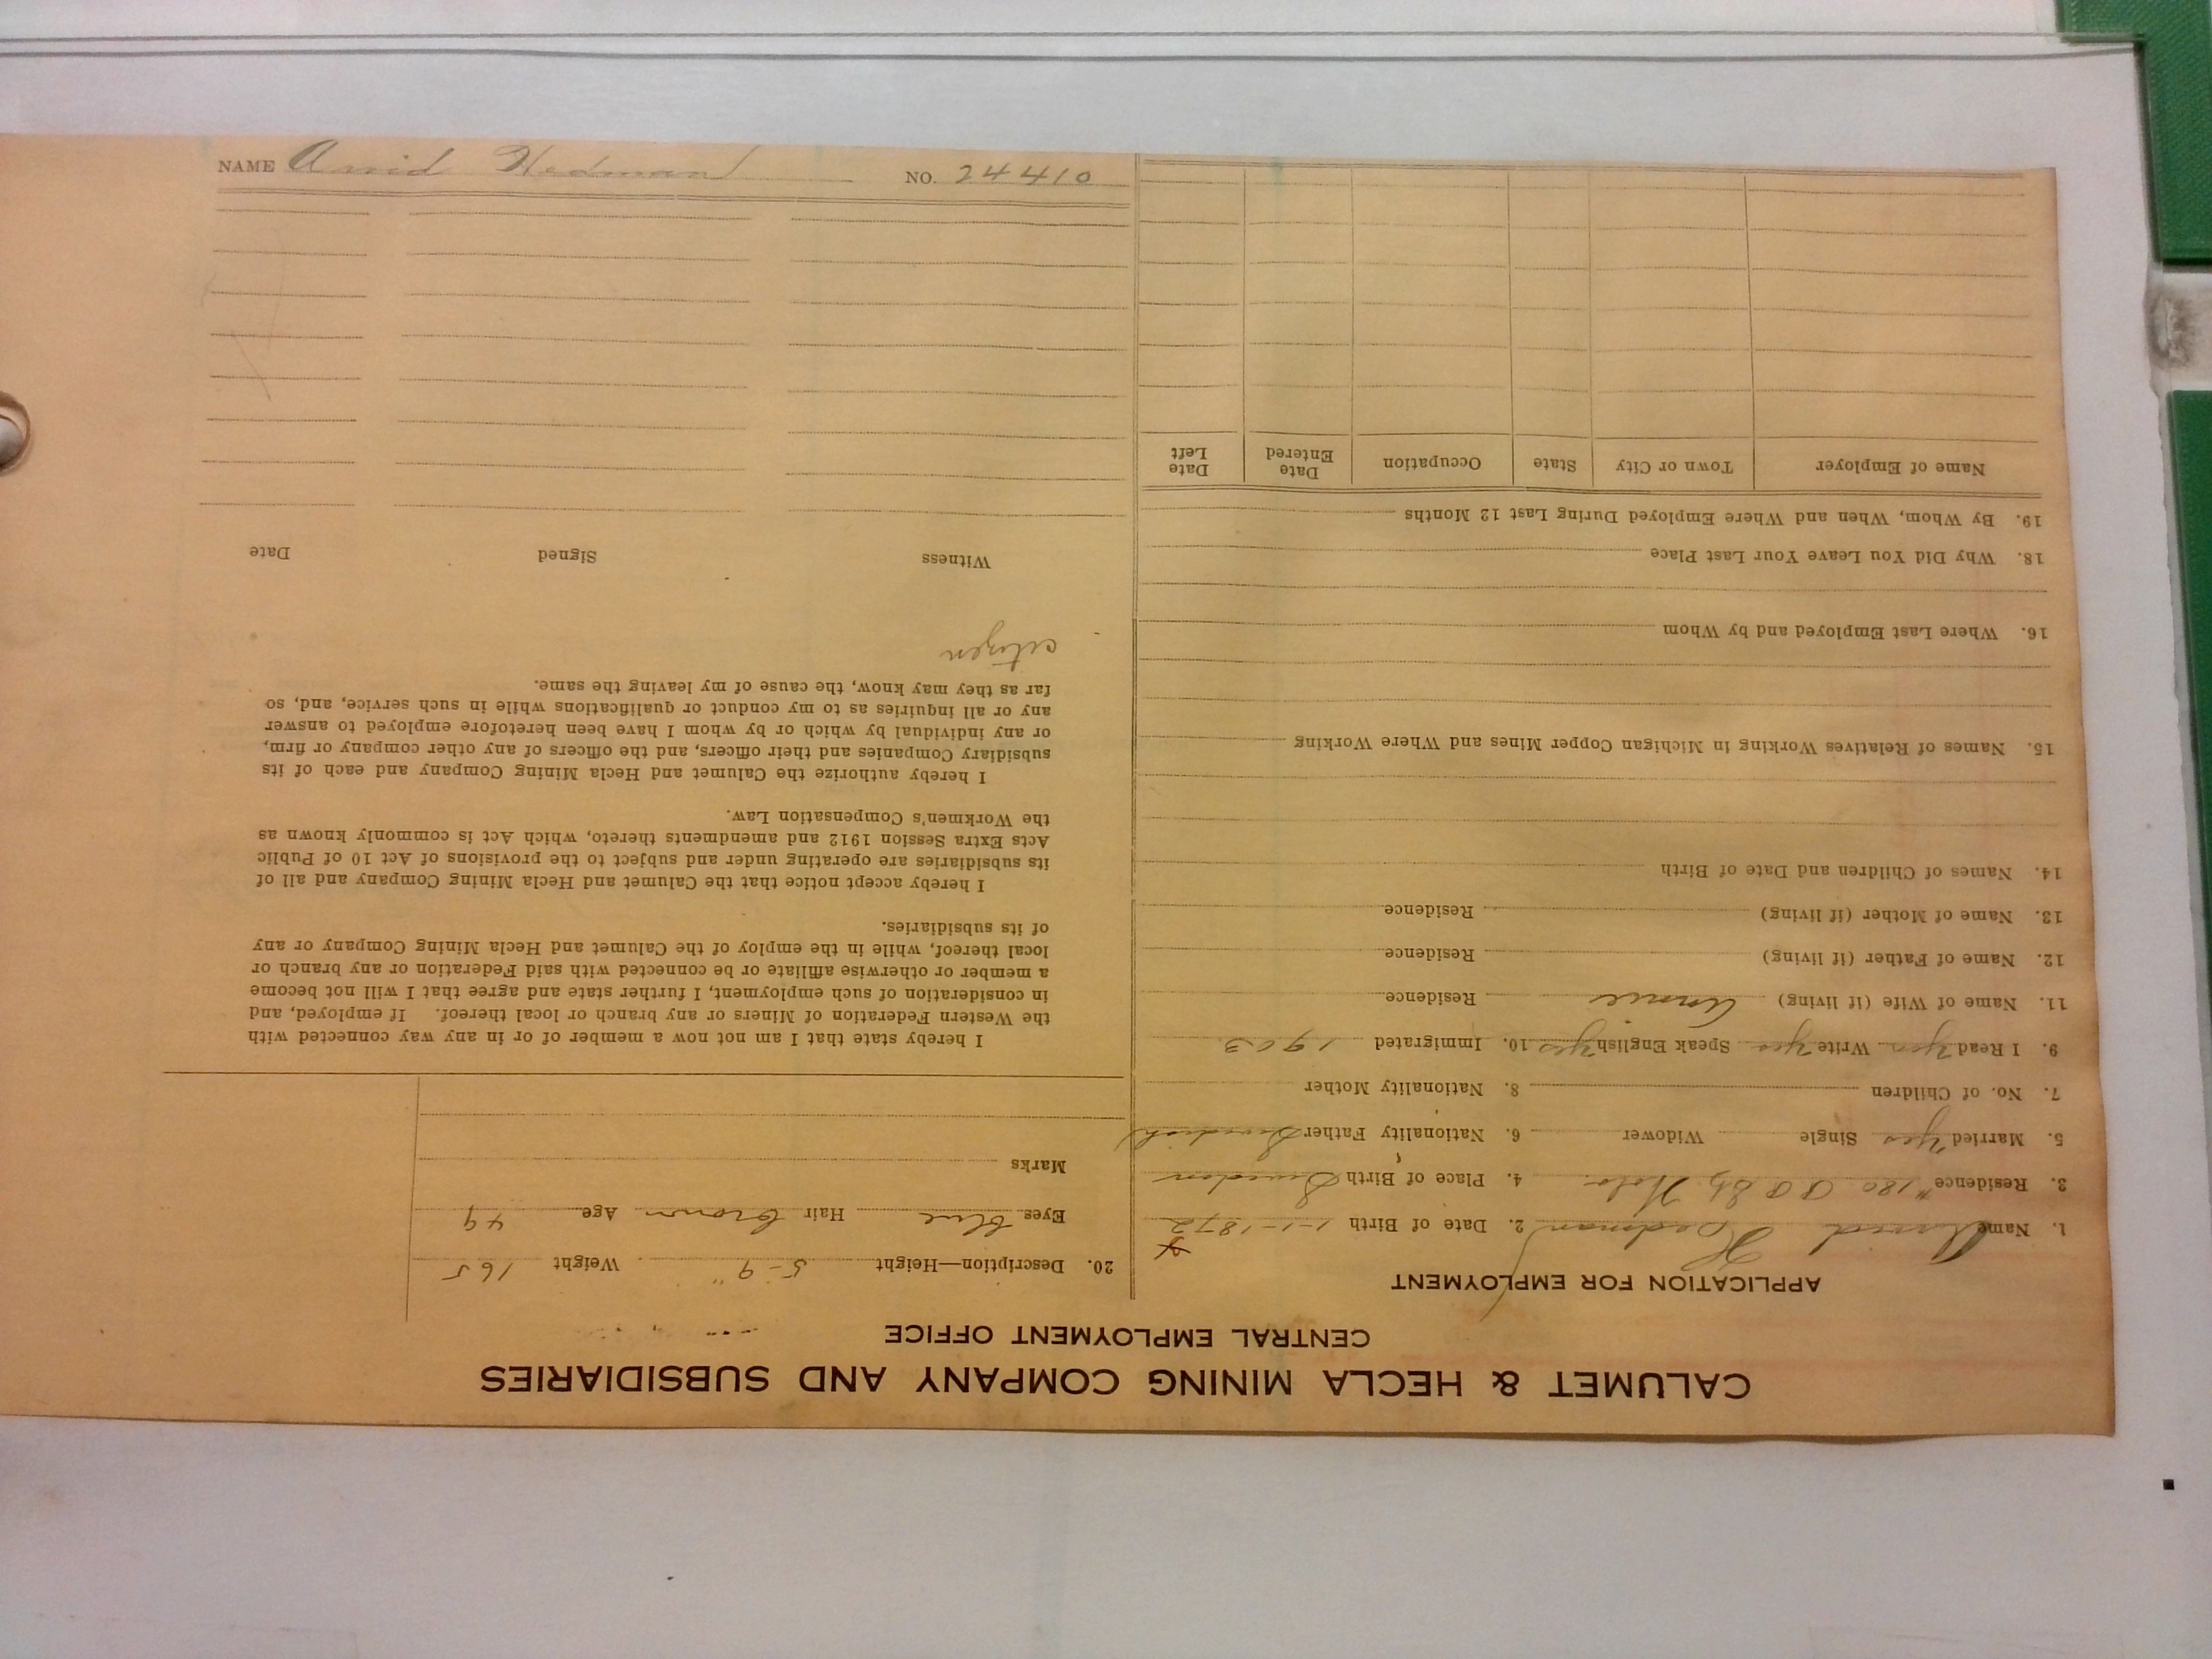 CALUMET & HECLA MINING COMPANY AND SUBSIDIARIES
CENTRAL EMPLOYMENT OFFICE
APPLICATION FOR EMPLOYMENT
1. Name Arvid Hedman 2. Date of Birth 1-1-1872
3. Residence "180 4. Place of Birth Sweden
5. Married Yes Single Widower 6. Nationality Father Swedish
7. No. of Children 8. Nationality Mother
9. I Read Yes Write Yes Speak English Yes 10. Immigrated 1903
11. Name of Wife (if living) Annie Residence
12. Name of Father (if living) Residence
13. Name of Mother (if living) Residence
14. Names of Children and Date of Birth
15. Names of Relatives Working in Michigan Copper Mines and Where Working
16. Where Last Employed and by Whom
18. Why Did You Leave Your Last Place
19. By Whom, When and Where Employed During Last 12 Months
Name of Employer Town or City State Occupation Date Entered Date Left
20. Description—Height 5-9" Weight 165
Eyes blue Hair brown Age 49
Marks
I hereby state that I am not now a member of or in any way connected with
the Western Federation of Miners or any branch or local thereof. If employed, and
in consideration of such employment, I further state and agree that I will not become
a member or otherwise affiliate or be connected with said Federation or any branch or
local thereof, while in the employ of the Calumet and Hecla Mining Company or any
of its subsidiaries.
I hereby accept notice that the Calumet and Hecla Mining Company and all of
its subsidiaries are operating under and subject to the provisions of Act 10 of Public
Acts Extra Session 1912 and amendments thereto, which Act is commonly known as
the Workmen's Compensation Law.
I hereby authorize the Calumet and Hecla Mining Company and each of its
subsidiary Companies and their officers, and the officers of any other company or firm,
or any individual by which or by whom I have been heretofore employed to answer
any or all inquiries as to my conduct or qualifications while in such service, and, so
far as they may know, the cause of my leaving the same.
citizen
Witness Signed Date
NAME Arvid Hedman NO. 24410